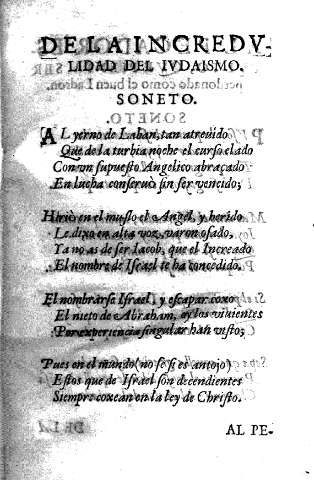 DE LA INCREDV-
LIDAD DEL IVDAISMO.
SONETO.
AL yerno de Laban, tan atreuido
Que de la turbia noche el curso elado
Con vn supuesto Angelico abraçado
En lucha conseruò sin ser vencido;
Hiriò en el muslo el Angel, y herido
Le dixo en alta voz, varon osado,
Ya no as de ser Iacob, que el Increado
El nombre de Israel te ha concedido.
El nombrarse Israel, y escapar coxo
El nieto de Abraham, oy los viuientes
Por experiencia singular han visto;
Pues en el mundo (no se si es antojo)
Estos que de Israel son decendientes
Siempre coxean en la ley de Christo.
AL PE-